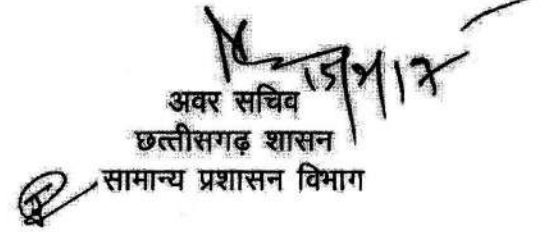 अवर सचिव
छत्तीसगढ़ शासन
सामान्य प्रशासन विभाग